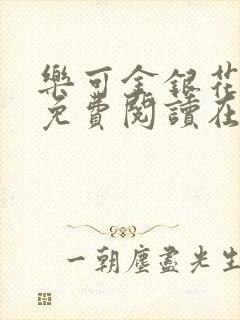 樂可金銀花
免費閱讀在
一朝塵盡光生